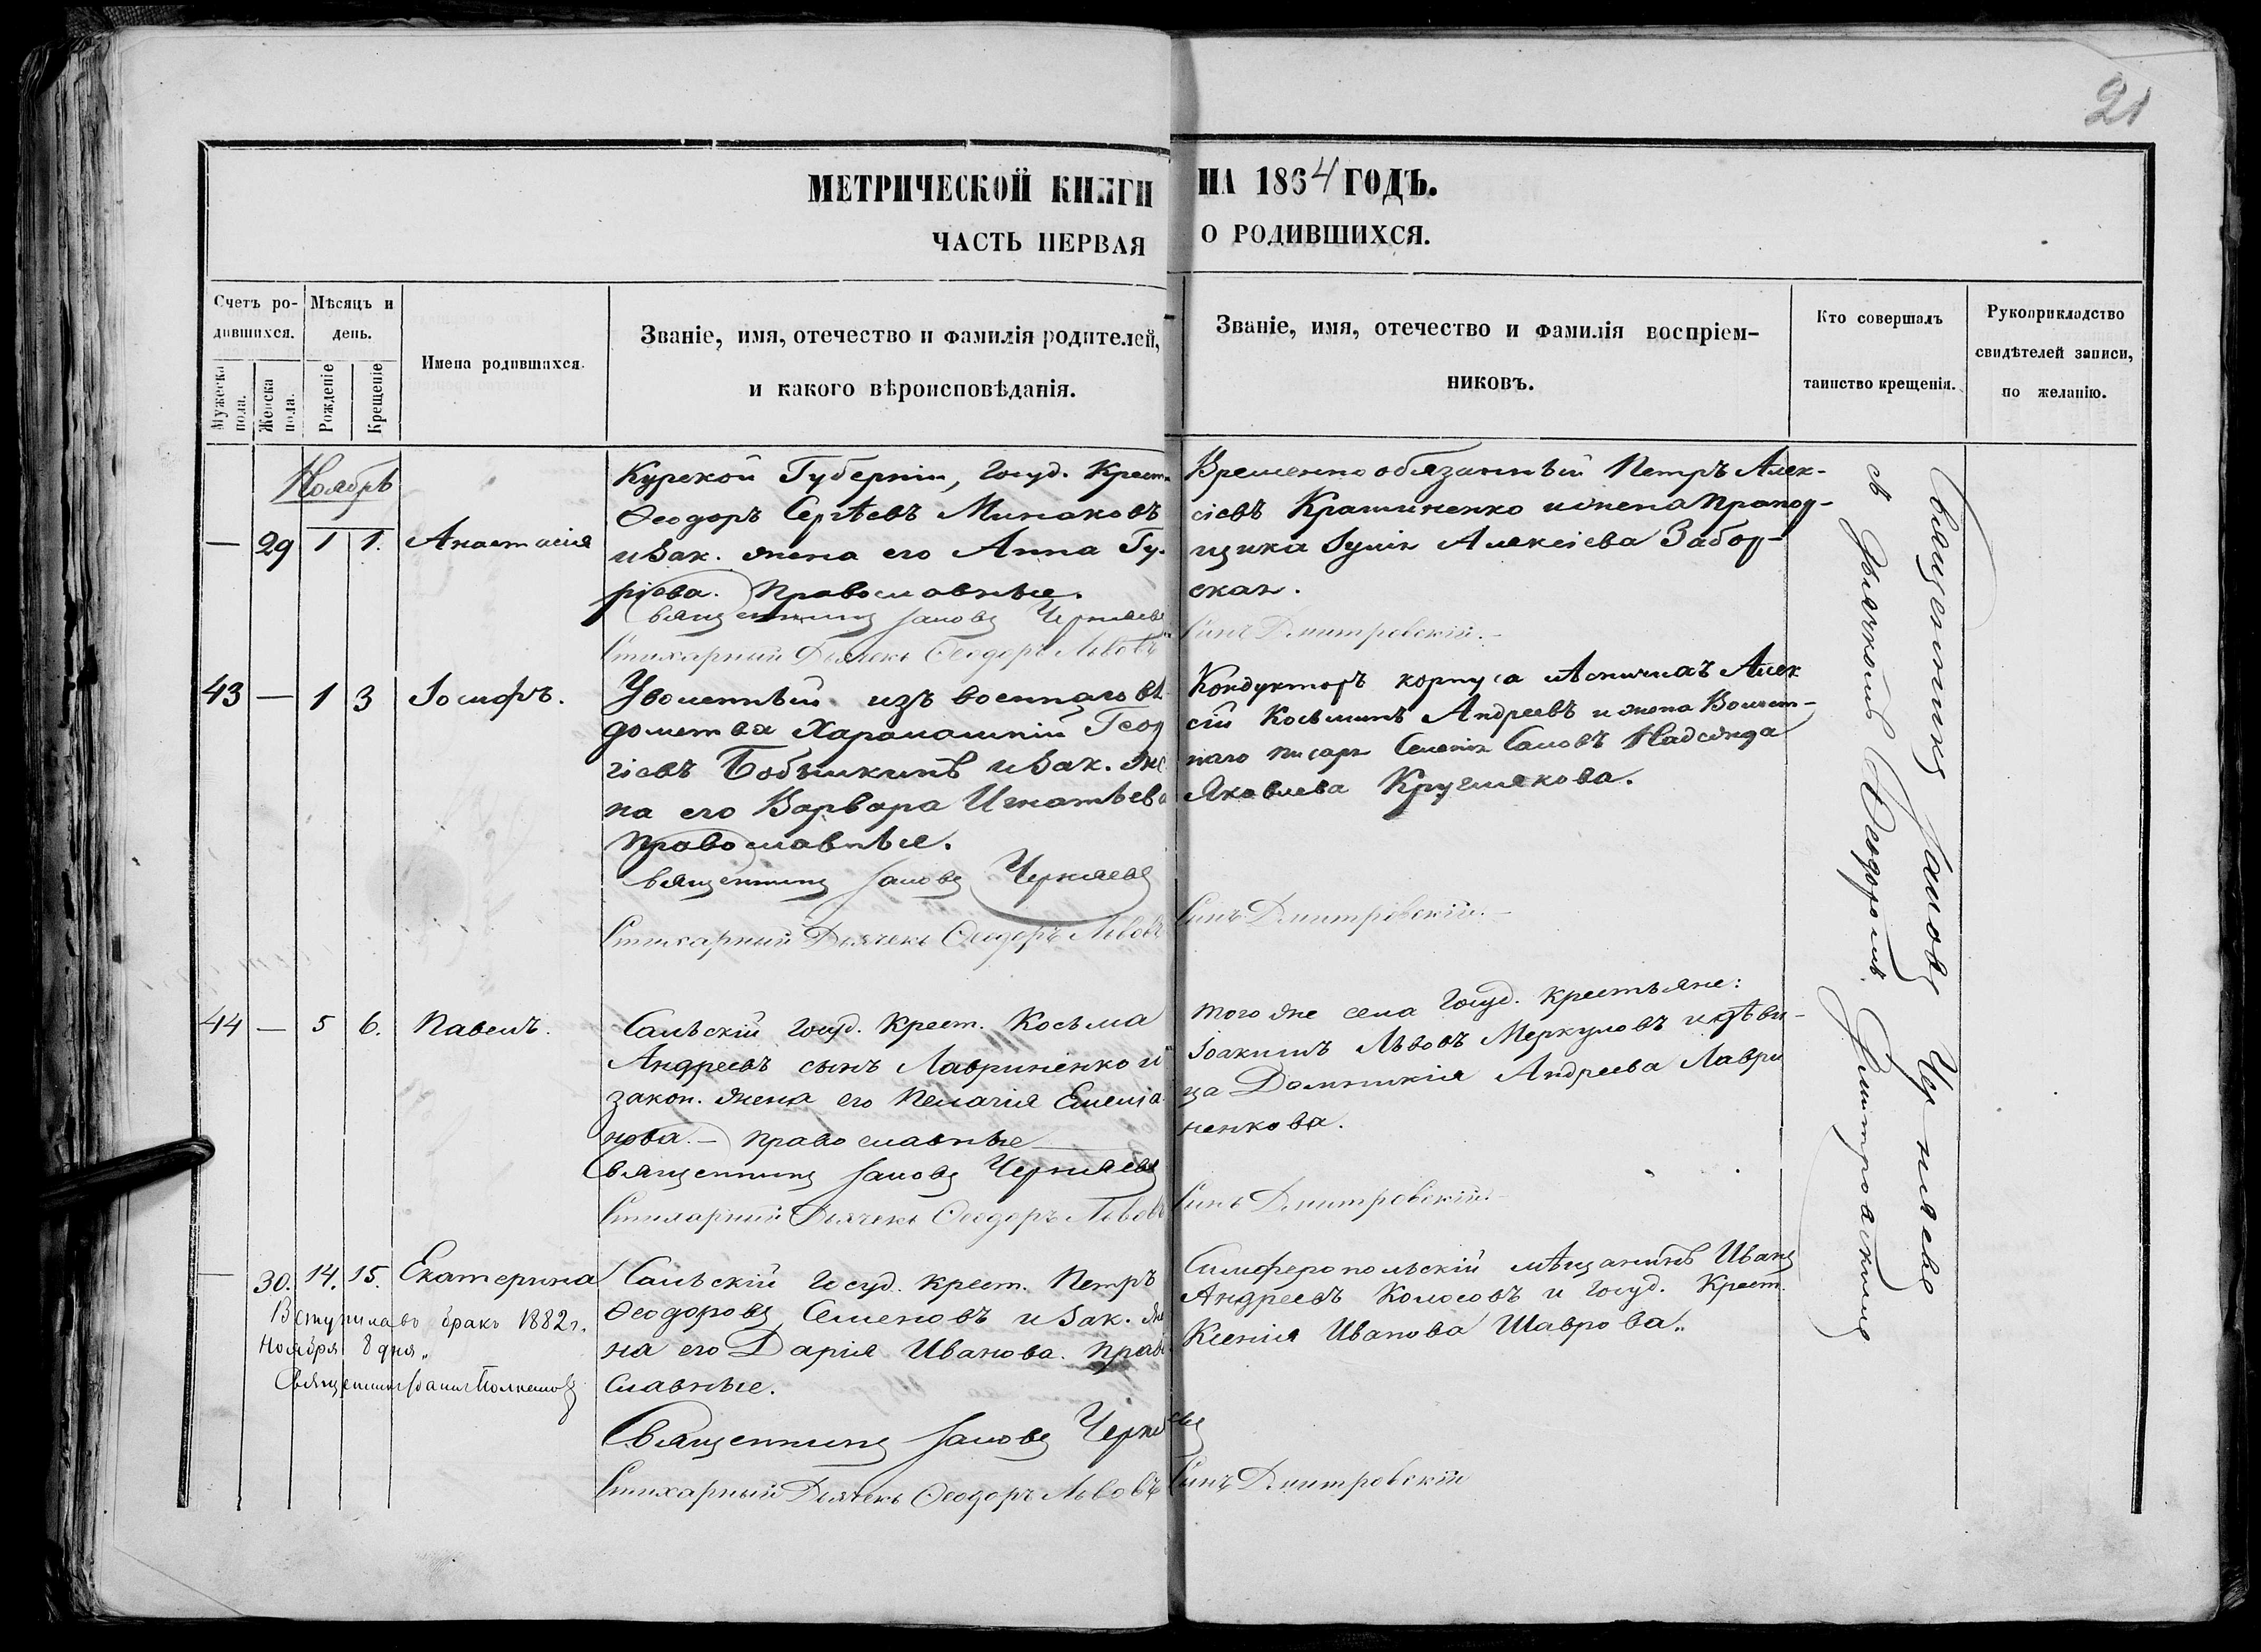 21
МЕТРИЧЕСКОЙ КНИГИ НА 1864 ГОДЪ.
ЧАСТЬ ПЕРВАЯ О РОДИВШИХСЯ.
Счетъ родившихся.
Мужеска пола.
Женска пола.
Мѣсяцъ и день.
Рожденіе
Крещеніе
Имена родившихся.
Званіе, имя, отечество и фамилія родителей,
и какого вѣроисповѣданія.
Званіе, имя, отечество и фамилія воспріем-
никовъ.
Кто совершалъ
таинство крещенія.
Рукоприкладство
свидѣтелей записи,
по желанію.
Ноябрь
— 29 1 1. Анастасія
Курской Губерніи, Госуд. Крест.
Ѳеодоръ Сергѣевъ Минаковъ
и Зак. жена его Анна Гу-
ріева. Православные.
Священникъ Іаковъ Черняевъ
Стихарный Дьячекъ Ѳеодоръ Львовъ
Временно обязанный Петръ Алек-
сіевъ Крашиненко и жена Прапор-
щика Алексіева
ская.
Синъ Дмитровскій.
43 — 1 3 Іосифъ.
Уволенный изъ военнаго вѣ
домства Харалампій Геор
гіевъ Бобылкинъ и Зак. же
на его Варвара Игнатьева
Православные.
Священникъ Іаковъ Черняевъ
Стихарный Дьячекъ Ѳеодоръ Львовъ
Кондукторъ корпуса лѣсничихъ Алек
сій Косьминъ Андреевъ и жена Волост-
наго писаря Надежда
Яковлева Круглякова.
Синъ Дмитровскій.
44 — 5 6. Павелъ.
Сальскій Госуд. Крест. Косьма
Андреевъ сынъ Лавриненко и
закон. жена его Пелагія Емеліа
нова. — Православные
Священникъ Іаковъ Черняевъ
Стихарный Дьячекъ Ѳеодоръ Львовъ
того же села Госуд. Крестьяне:
Іоакимъ Львовъ Меркуловъ и дѣви-
ца Домникія Андреева Лаври
ненкова.
Синъ Дмитровскій.
— 30. 14. 15. Екатерина
Вступила въ бракъ 1882 г.
Ноября 8 дня„
Сальскій Госуд. крест. Петръ
Ѳеодоровъ Семеновъ и Зак. же
на его Дарія Иванова. Право
славные.
Священникъ Іаковъ Черняевъ
Стихарный Дьячекъ Ѳеодоръ Львовъ
Симферопольскій мѣщанинъ Иванъ
Андреевъ Колосовъ и Госуд. Крест.
Ксенія Иванова Шаврова„
Синъ Дмитровскій
Священникъ Іаковъ Черняевъ
съ Дьячкомъ Ѳеодоромъ Дмитровскимъ